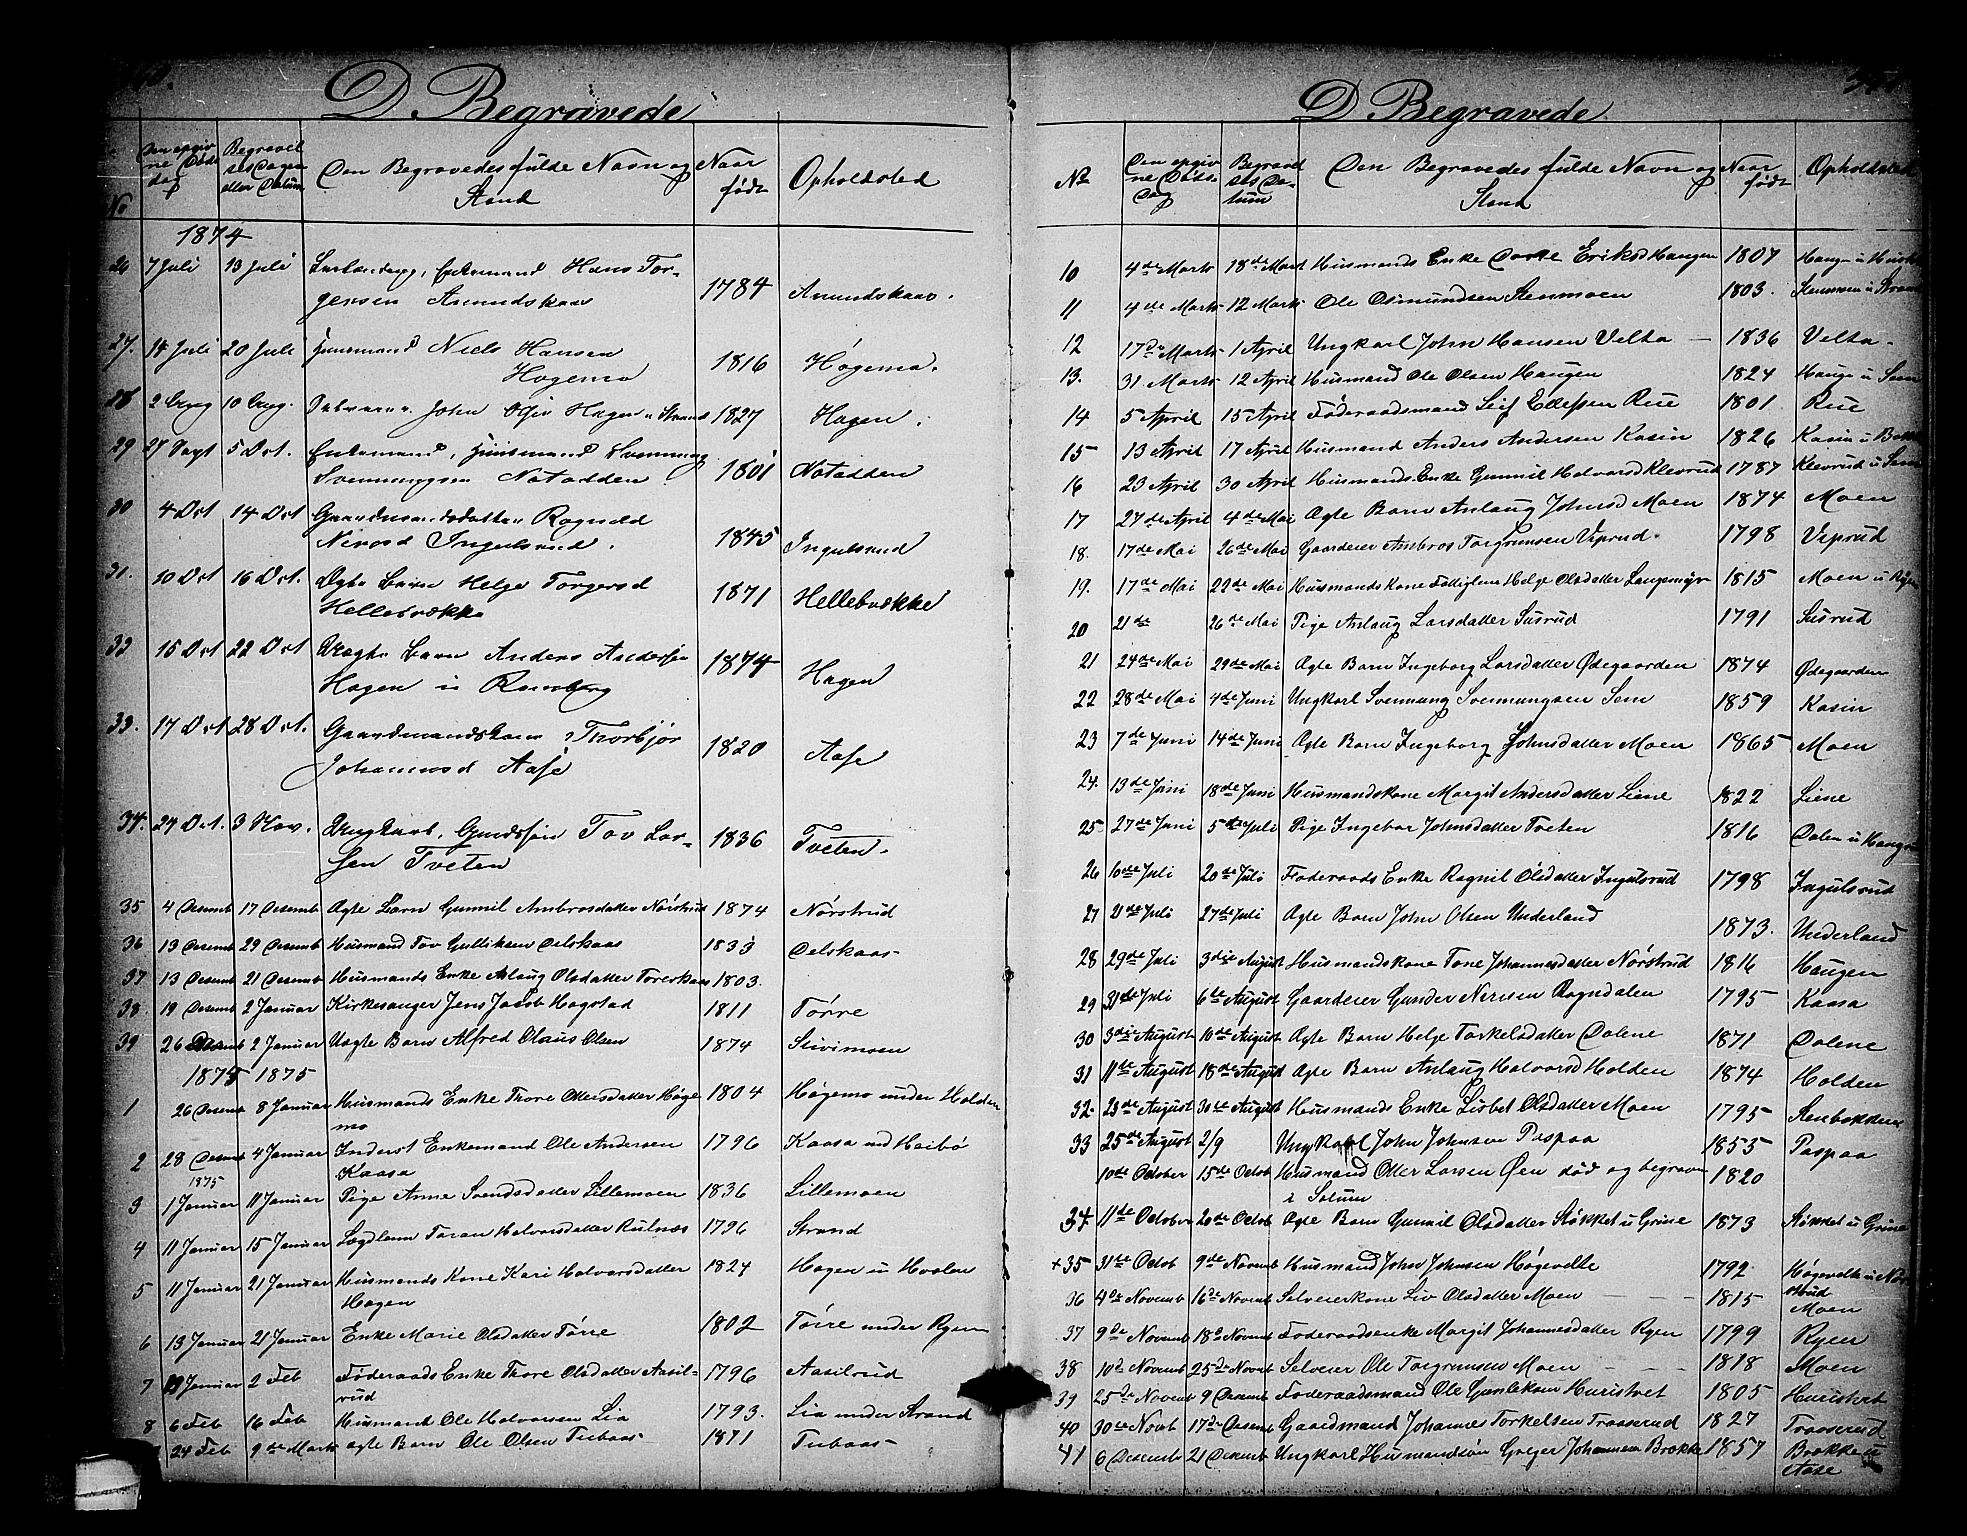 D. Begravede
No
Den opgivne Døds dag
Begravelses Dagen eller Datum
Den Begravedes fulde Navn og Stand
Naar født
Opholdsted
1874
26 7 Juli 13 Juli Enkemand Hans Tor-
gersen Amundskaas 1784 Amundskaas.
27. 14 Juli 20 Juli Huusmand Niels Hansen
Hogemo 1816 Høgemo.
28 2 Aug 10 Aug. John Hagen u Strand 1827 Hagen.
29 27 Sept 5 Oct. Enkemand, Huusmand Svennung
Svennungsen Notodden 1801 Notodden
30 4 Oct 14 Oct Gaardmandsdatter Ragnild
Nirosd Ingulsrud. 1845 Ingulsrud
31. 10 Oct 16 Oct. Ægte Barn Helge Torgersd
Hellebrække 1871 Hellebrække
32 15 Oct 22 Oct Uægte Barn Anders Andersen
Hagen u Ramberg 1874 Hagen
33. 17 Oct 28 Oct. Gaardmandskone Thorbjør
Johannesd Aase 1820 Aase
34. 24 Oct. 3 Nov. Ungkarl, Tov Lar-
sen Tveten 1836 Tveten.
35 4 Desemb 17 Desemb Ægte Barn Gunnil Ambrosdatter Nørstrud 1874 Nørstrud
36 13 Desemb 29 Desemb Husmand Tov Gulliksen Oelskaas 1833 Oelskaas
37 13 Desemb 21 Desemb Husmands Enke Aslaug Olsdatter Torerkaas 1803.
38 19 Desemb 2 Januar Kirkesanger Jens Jacob Hogstad 1811 Tørre
39 26 Desemb 2 Januar Uægte Barn Alfred Olaus Olsen 1874 Stivimoen
1874 1875
1 26 Desemb 8 Januar Husmands Enke Thore Ollersdatter Høge
mo 1804 Høgemo under Holden
2 28 Desemb 4 Januar Inderst Enkemand Ole Andersen
Kaasa 1796 Kaasa und Heibø
1875
3 1 Januar 11 Januar Pige Anne Svendsdatter Lillemoen 1836 Lillemoen
4 11 Januar 15 Januar Lægdlem Toran Halvorsdatter Rulnæs 1796 Strand
5 11 Januar 21 Januar Husmands Kone Kari Halvorsdatter
Hagen 1824 Hagen u Hvalen
6 13 Januar 21 Januar Enke Marie Olsdatter Tørre 1802 Tørre under Ryen
7 19 Januar 2 Feb Føderaads Enke Thore Olsdatter Aasil-
rud 1796 Aasilrud
8 6 Feb 16 Feb Husmand Ole Halvorsen Lia 1793. Lia under Strand
24 Feb 9de Marts ægte Barn Ole Olsen Tubaas 1871 Tubaas
D. Begravede
No
Den opgivne Døds Dag
Begravelses Datum
Den Begravedes fulde Navn og Stand
Naar født
Opholdsted
10 4de Marts 18de Mart Husmands Enke Dorte Eriksd Haugen 1807
11 4de Marts 12 Marts Ole Osmundsen Stenmoen 1803. Stenmoen u Strand
12 17de Marts 1 April Ungkarl John Hansen Velta 1836 Velta
13. 31 Marts 12 April Husmand Ole Olsen Haugen 1824 Hauge u Sem
14 5 April 15 April Føderaadsmand Leif Edlefsen Rue 1801 Rue
15 13 April 17 April Husmand Anders Andersen Kasin 1826 Kasin u
16 23 April 30 April Husmands Enke Gunnil Halvorsd Klevrud 1787 Klevrud u Sem
17 27de April 4de Mai Ægte Barn Anlaug Johnsd Moen 1874 Moen
18. 17de Mai 26de Mai Gaardeier Ambros Torgrimsen Viprud. 1798 Viprud
19. 17de Mai 22de Mai Husmands Kone Fattiglem Helge Olsdatter Langemyr 1815 Moen u
20 21de 26de Mai Pige Anlaug Larsdatter Susrud 1791 Susrud
21 24de Mai 29de Mai Ægte Barn Ingeborg Larsdatter Ødegaarden 1874 Ødegaarden
22 28de Mai 4de Juni Ungkarl Svennung Svennungsen Sem 1859 Kasin
23 7de Juni 14de Juni Ægte Barn Ingeborg Johnsdatter Moen 1865 Moen
24. 13de Juni 18de Juni Husmandskone Margit Andersdatter Liene 1822 Liene
25 27de Juni 5te Juli Pige Ingebor Johnsdatter Tveten 1816 Dalen u
26 10de Juli 20de Juli Føderaads Enke Ragnil Olsdatter Ingulsrud 1798 Ingulsrud
27 21de Juli 27de Juli Ægte Barn John Olsen Underland 1873. Underland
28 29de Juli 3die August Husmandskone Tone Johannesdatter Nørstrud 1816 Haugen
29 31de Juli 6te August Gaardeier Gunder Nersen Rogndalen 1795 Kaasa
30 3die August 10de August Ægte Barn Helge Torkelsdatter Dalene 1871 Dalene
31 11de August 18de August Ægte Barn Anlaug Halvorsd Holden 1874 Holden
32. 23de August 30te August Husmands Enke Lisbet Olsdatter Moen 1795 Stenbokken
33 25de August 2/9 Ungkarl John Johnsen Paspaa 1853 Paspaa
10de October 15de Octob Husmand Otter Larsen Øen død og begraven
i Solum 1820
34. 11de October 20de Octob Ægte Barn Gunnil Olsdatter Støkket u Grine 1873 Støkket u Grine
+35 31te Octob 9de Novemb Husmand John Johnsen Høgevelte 1792 Høgevelte u Nør
strud
36 4de Novemb 16de Novemb Selveierkone Liv Olsdatter Moen 1815 Moen
37 9de Novemb 18d Novemb Føderaadsenke Margit Johannesdatter Ryen 1799 Ryen
38 10d Novemb 25de Novemb Selveier Ole Torgrimsen Moen 1818 Moen
39 25de Novemb 9 Desemb Føderaadsmand Ole Gunleksen Huristvet 1805 Huristvet
40 30te Novb 17de Desemb Gaardmand Johannes Torkelsen Traaserud 1827 Traaserud
41 6 Desemb 21 Desemb Ungkarl Husmandssøn Greger Johannesen Brække 1857 Brække u
Aase